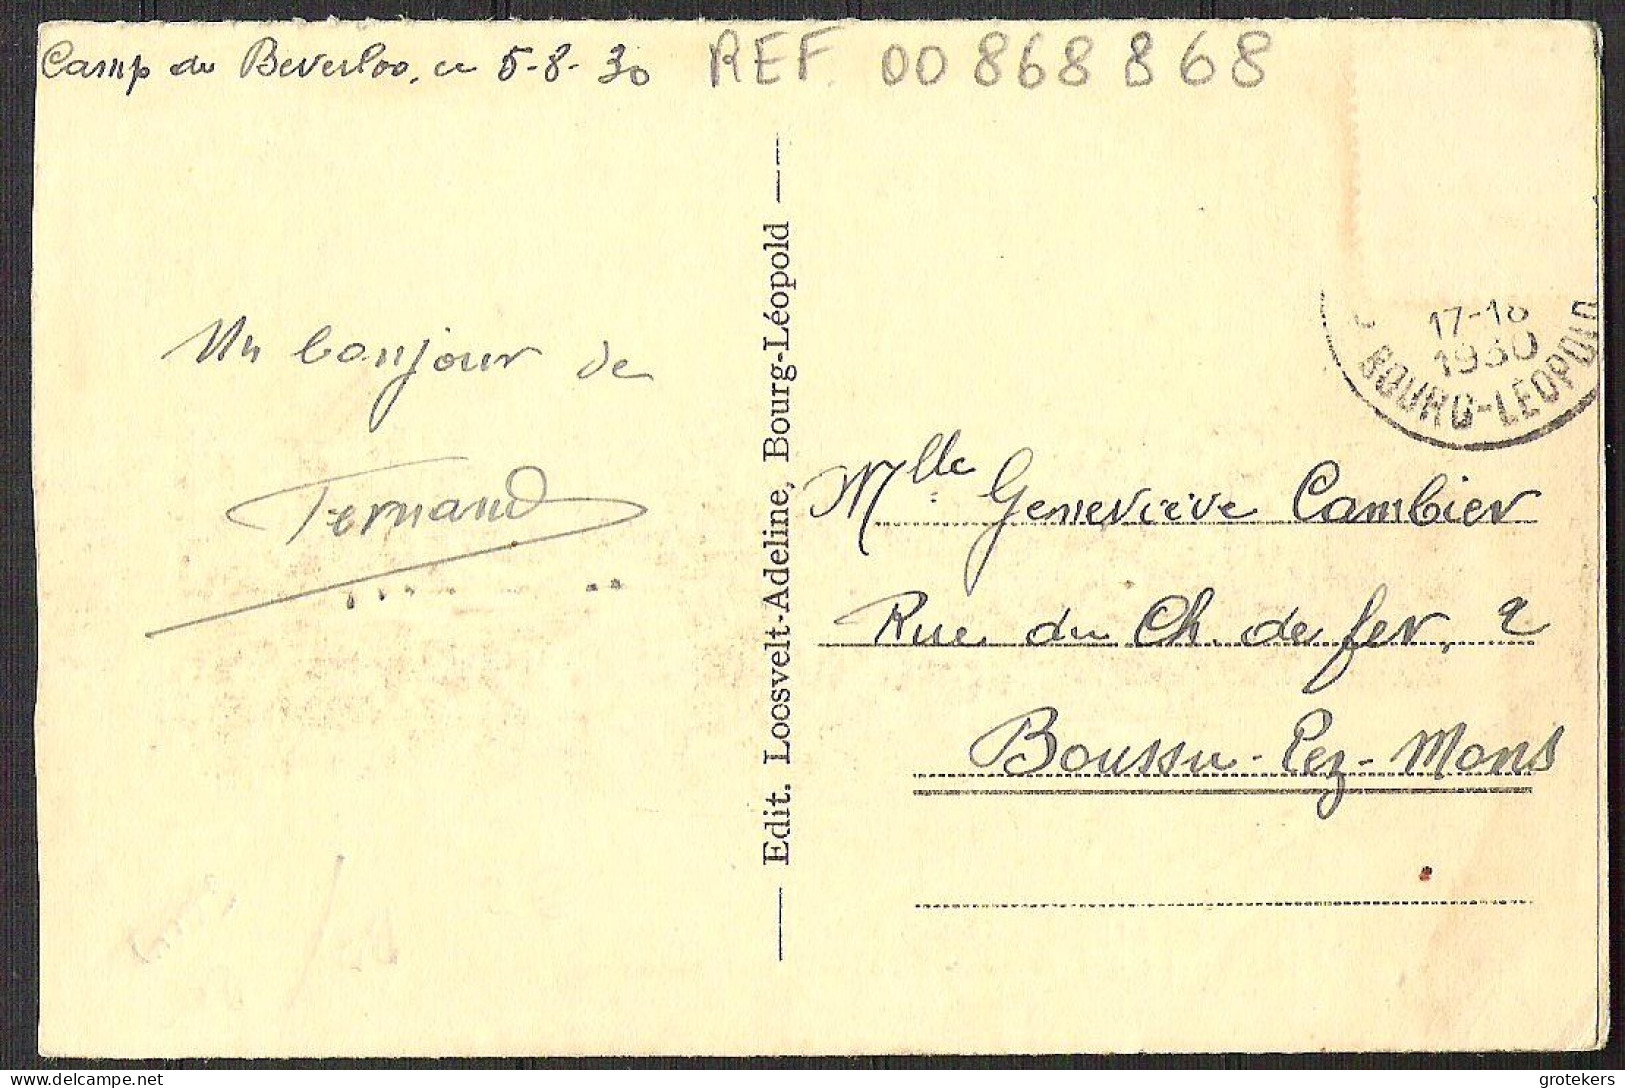 Camp de Beverloo, ce 5-8-30
REF. 00868868
Un bonjour de
Fernand
Edit. Loosvelt-Adeline, Bourg-Léopold
17-18
1930
BOURG-LEOPOLD
Mlle Geneviève Cambier
Rue du Ch. de fer, 2
Boussu-Lez-Mons
delcampe.net
grotekers